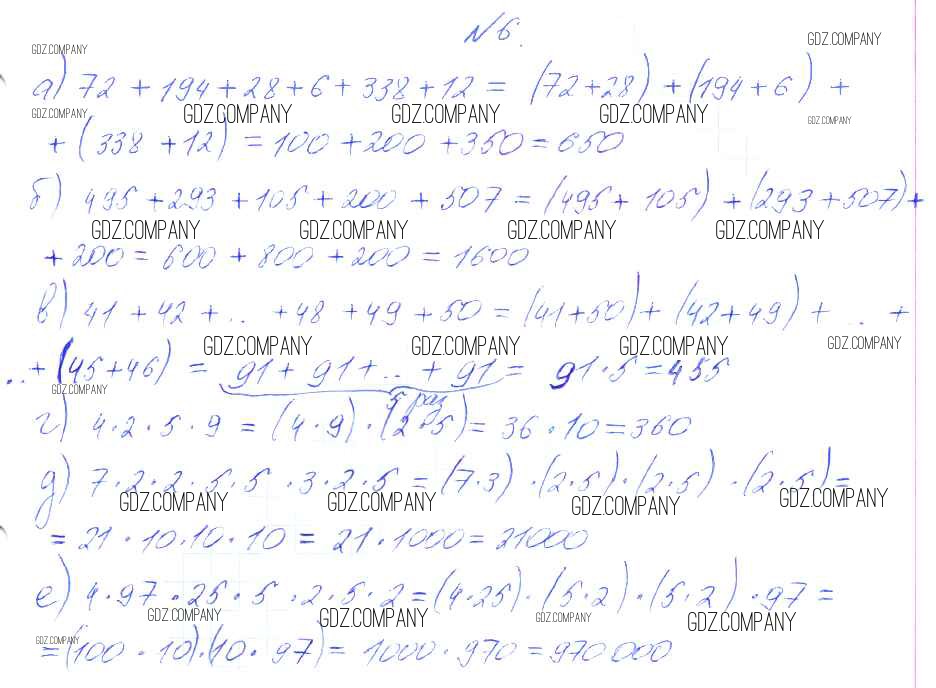 №6.
GDZ.COMPANY GDZ.COMPANY
а) 72 + 194 + 28 + 6 + 338 + 12 = (72+28) + (194 + 6) +
GDZ.COMPANY GDZ.COMPANY GDZ.COMPANY GDZ.COMPANY GDZ.COMPANY
+ (338 + 12) = 100 + 200 + 350 = 650
б) 495 + 293 + 105 + 200 + 507 = (495 + 105) + (293 + 507) +
GDZ.COMPANY GDZ.COMPANY GDZ.COMPANY GDZ.COMPANY
+ 200 = 600 + 800 + 200 = 1600
в) 41 + 42 + ... + 48 + 49 + 50 = (41 + 50) + (42 + 49) + ... +
GDZ.COMPANY GDZ.COMPANY GDZ.COMPANY GDZ.COMPANY
..+ (45+46) = 91 + 91 + ... + 91 = 91 · 5 = 455
GDZ.COMPANY 5 раз
г) 4 · 2 · 5 · 9 = (4 · 9) · (2 · 5) = 36 · 10 = 360
д) 7 · 2 · 2 · 5 · 5 · 3 · 2 · 5 = (7 · 3) · (2 · 5) · (2 · 5) · (2 · 5) =
GDZ.COMPANY GDZ.COMPANY GDZ.COMPANY GDZ.COMPANY
= 21 · 10 · 10 · 10 = 21 · 1000 = 21000
е) 4 · 97 · 25 · 5 · 2 · 5 · 2 = (4 · 25) · (5 · 2) · (5 · 2) · 97 =
GDZ.COMPANY GDZ.COMPANY GDZ.COMPANY GDZ.COMPANY
GDZ.COMPANY
= (100 · 10) · (10 · 97) = 1000 · 970 = 970 000